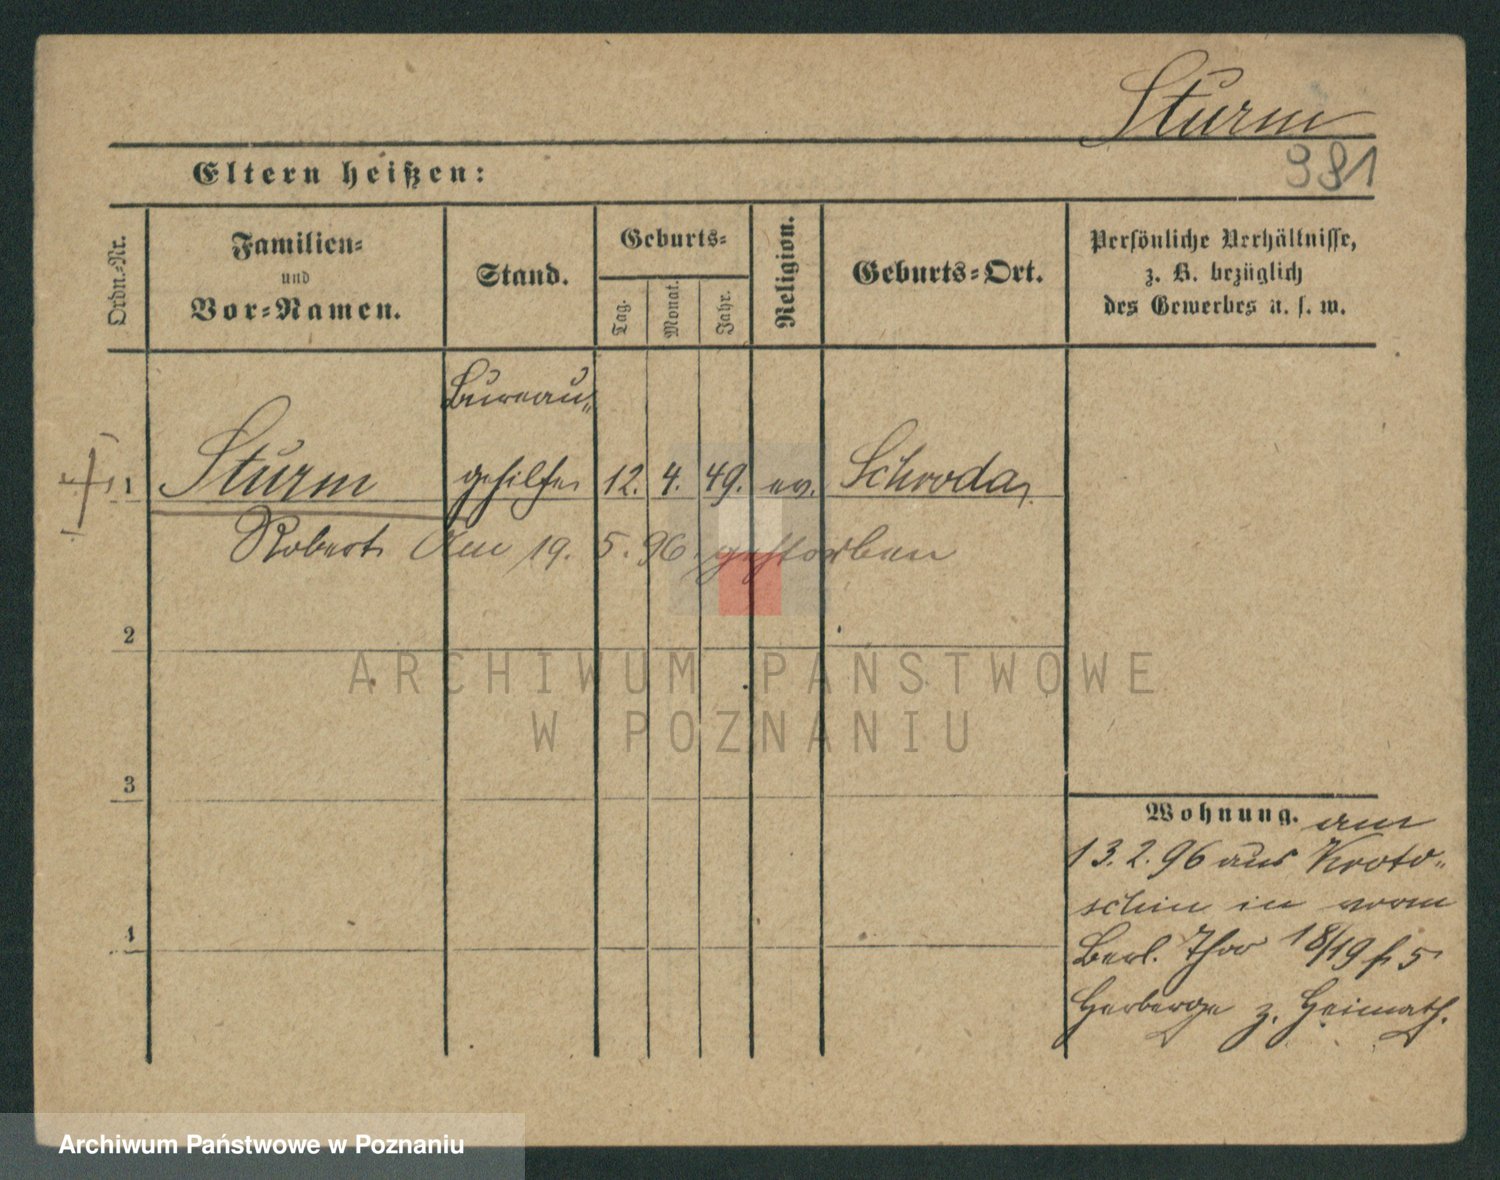 Sturm
981
Eltern heißen:
Ordn.-Nr.
Familien-
und
Vor-Namen.
Stand.
Geburts-
Tag.
Monat.
Jahr.
Religion.
Geburts-Ort.
Persönliche Verhältnisse,
z. B. bezüglich
des Gewerbes u. s. w.
Bureau-
1 Sturm gehilfe 12. 4. 49. ev. Schroda,
Robert Am 19. 5. 96. gestorben
2
ARCHIWUM PAŃSTWOWE
W POZNANIU
3
4
Wohnung. am
13.2.96 aus Kroto-
schin in vorm
Berl. Thor 18/19 5
Herberge z. Heimath.
Archiwum Państwowe w Poznaniu